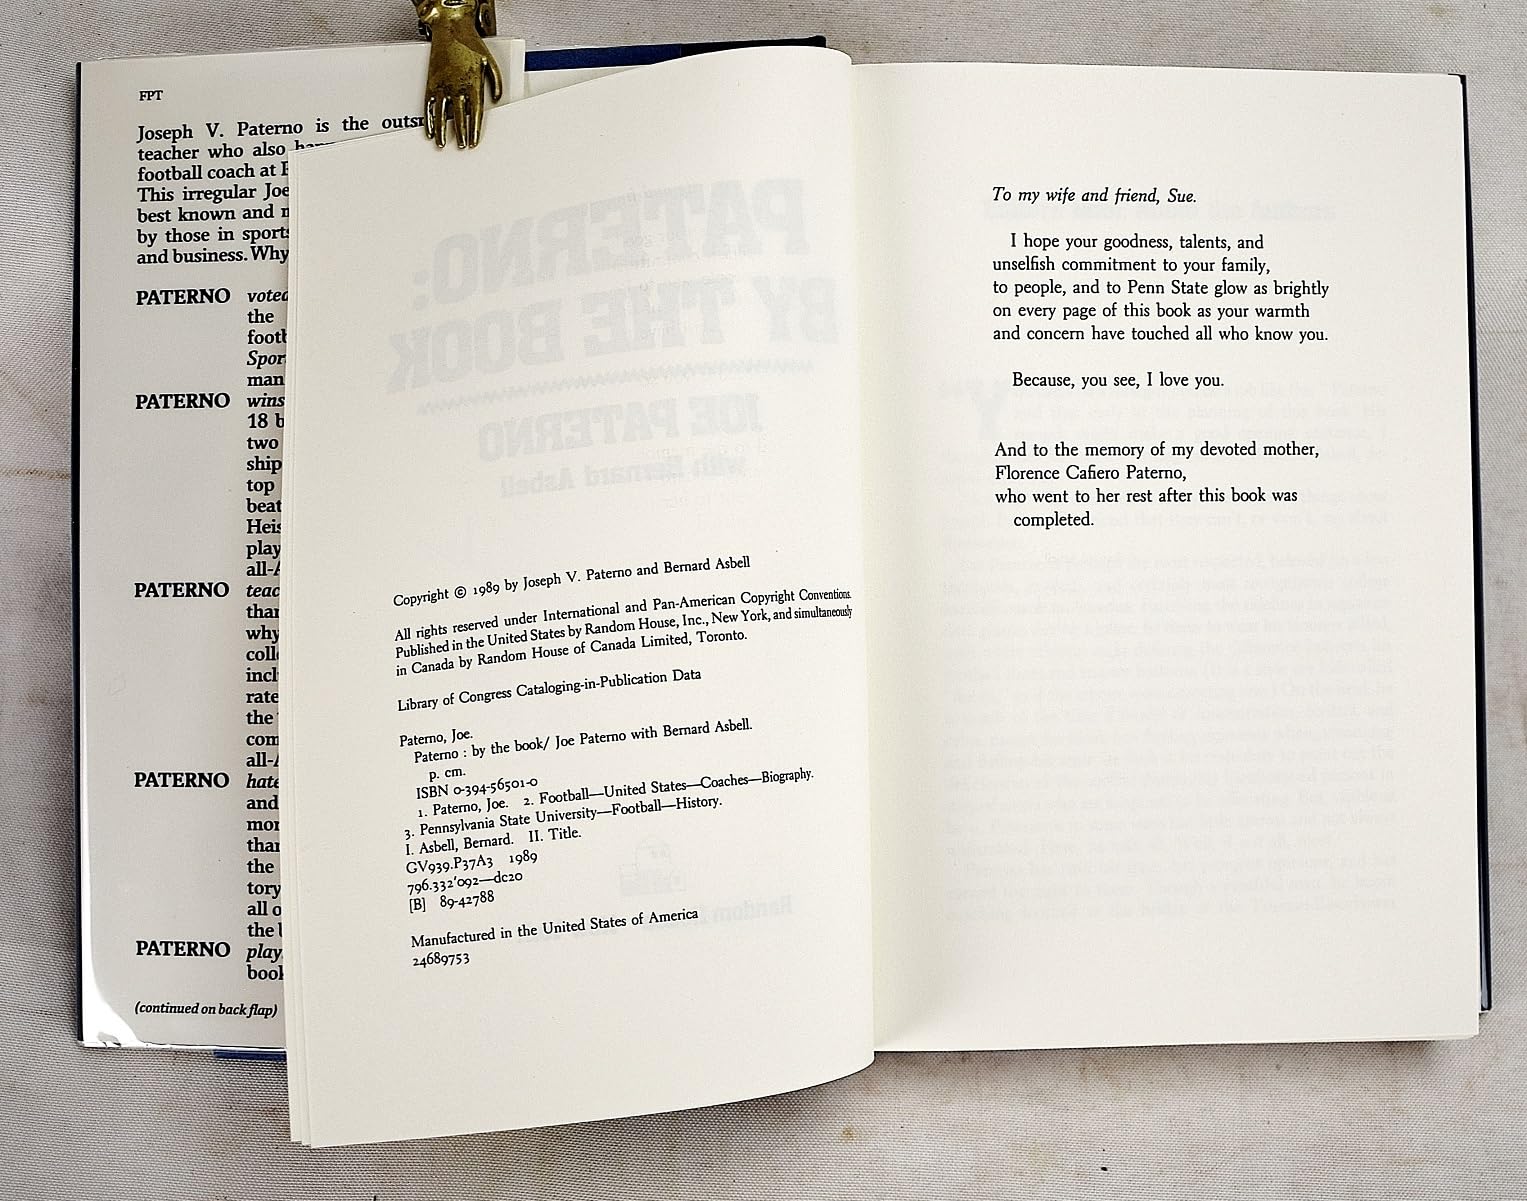 FPT
Joseph V. Paterno is the
teacher who also
football coach at
This irregular Joe
best known and
by those in sports
and business. Why
PATERNO voted
the
PATERNO wins
18
two
top
beat
PATERNO
why
the
PATERNO hate
and
than
the
tory
all
the
PATERNO play
book
(continued on back flap)
PATERNO:
BY THE BOOK
JOE PATERNO
with Bernard Asbell
Copyright © 1989 by Joseph V. Paterno and Bernard Asbell
All rights reserved under International and Pan-American Copyright Conventions.
Published in the United States by Random House, Inc., New York, and simultaneously
in Canada by Random House of Canada Limited, Toronto.
Library of Congress Cataloging-in-Publication Data
Paterno, Joe.
Paterno : by the book/ Joe Paterno with Bernard Asbell.
p. cm.
ISBN 0-394-56501-0
1. Paterno, Joe. 2. Football—United States—Coaches—Biography.
3. Pennsylvania State University—Football—History.
I. Asbell, Bernard. II. Title.
GV939.P37A3 1989
796.332'092—dc20
[B] 89-42788
Manufactured in the United States of America
24689753
To my wife and friend, Sue.
I hope your goodness, talents, and
unselfish commitment to your family,
to people, and to Penn State glow as brightly
on every page of this book as your warmth
and concern have touched all who know you.
Because, you see, I love you.
And to the memory of my devoted mother,
Florence Cafiero Paterno,
who went to her rest after this book was
completed.